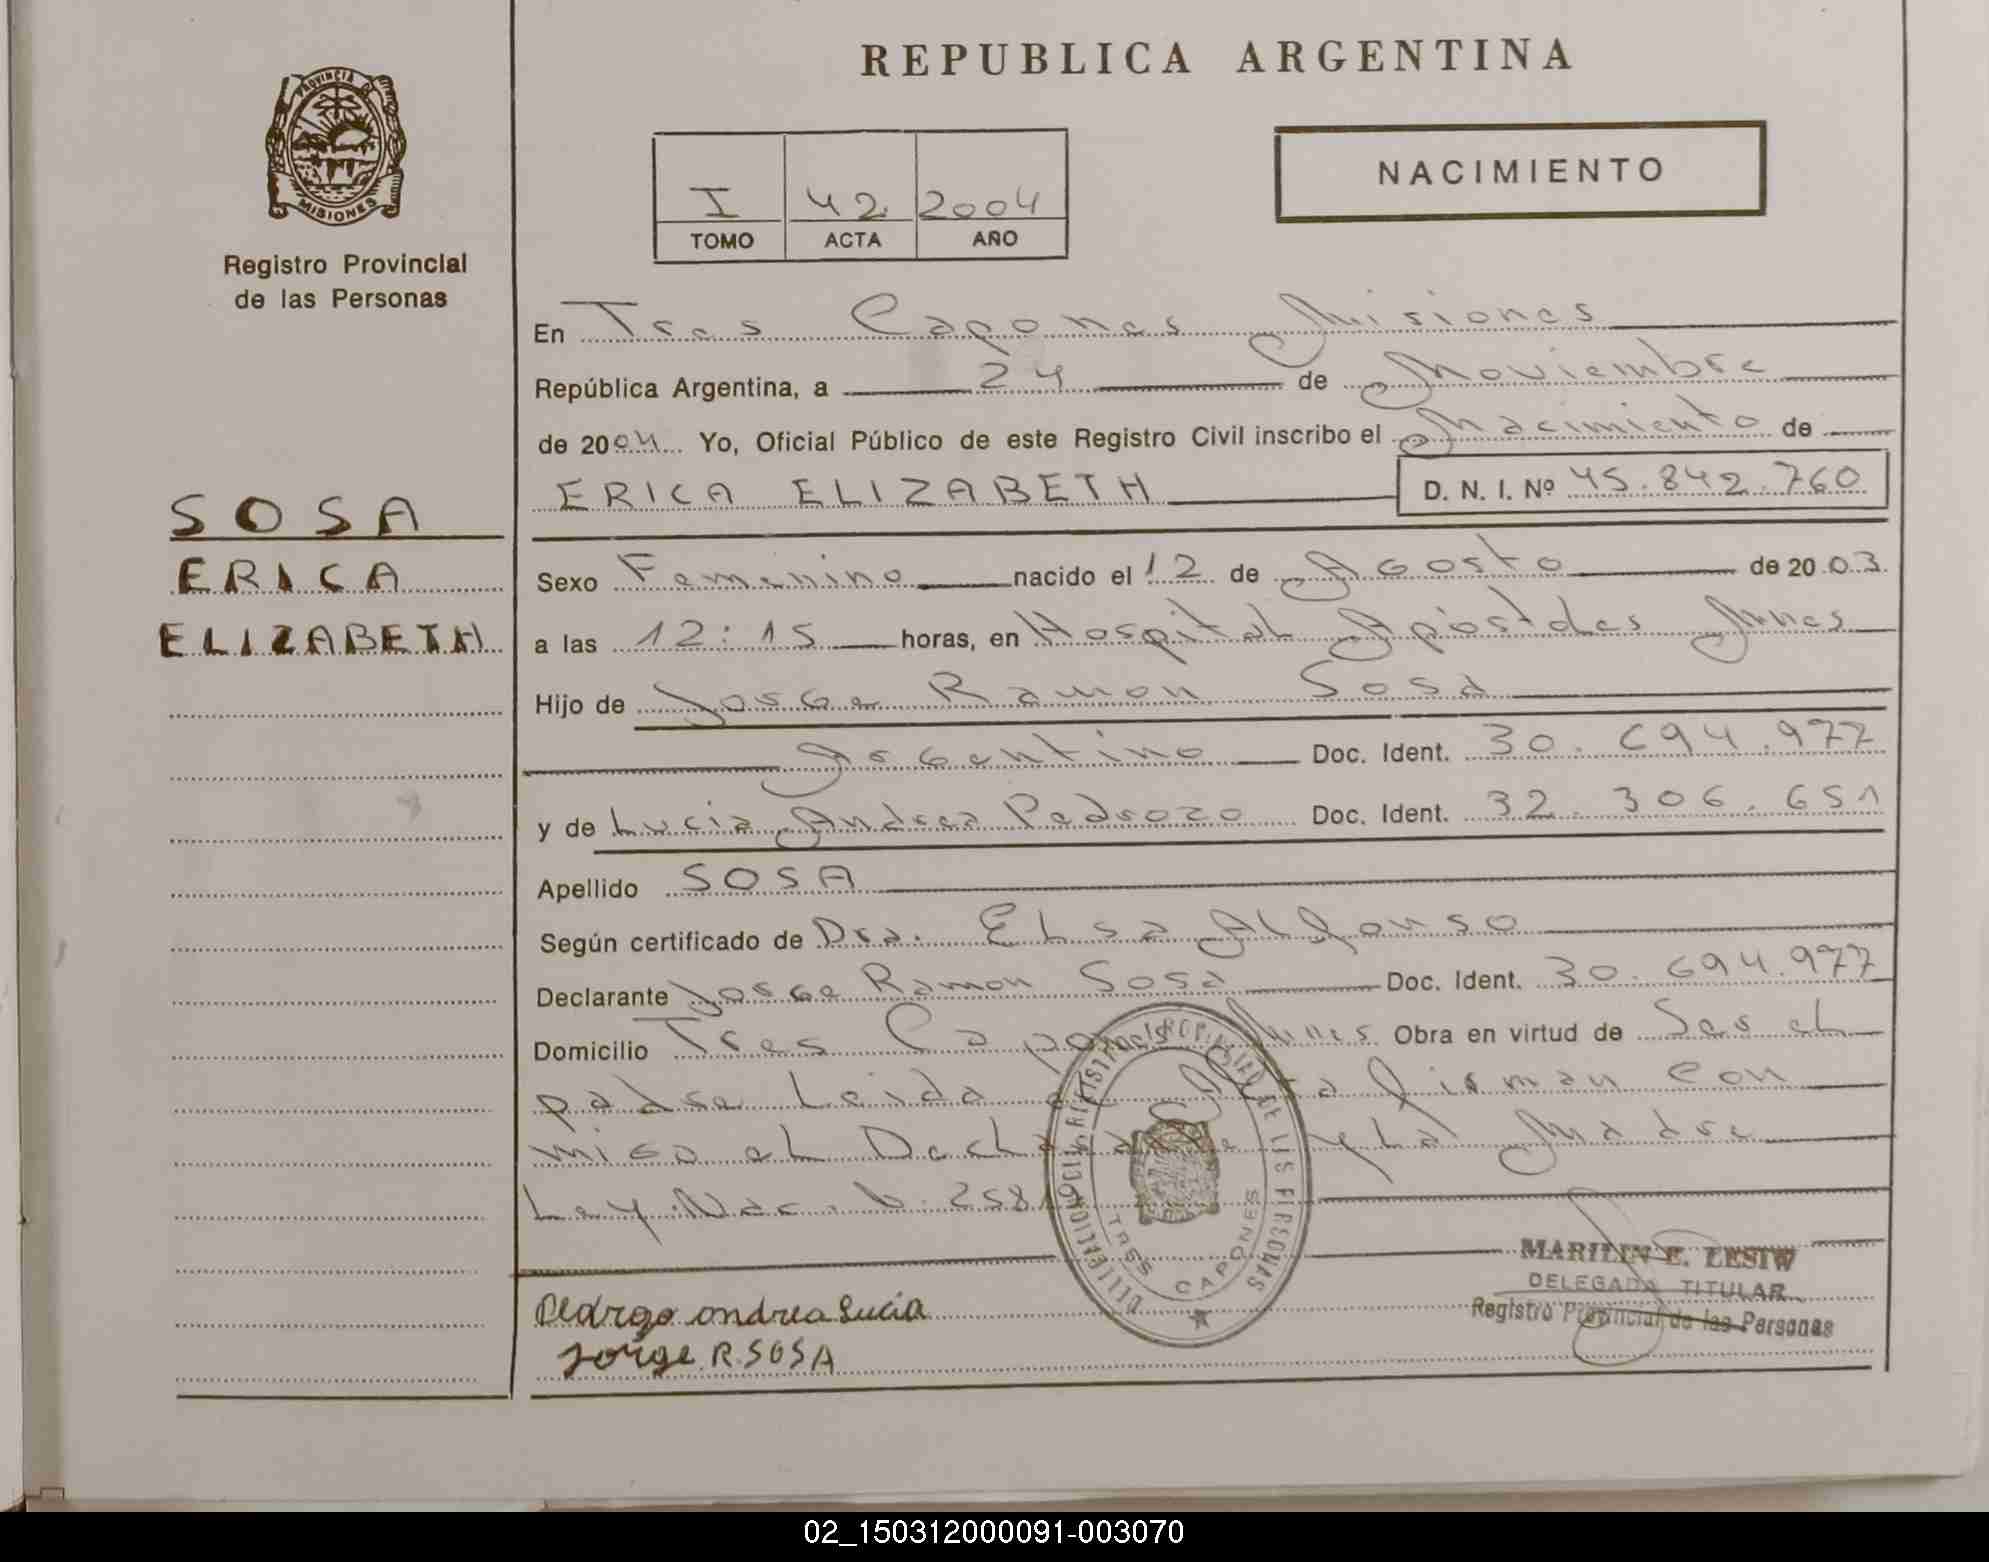 REPUBLICA ARGENTINA
PROVINCIA DE
MISIONES
Registro Provincial
de las Personas
I 42 2004
TOMO ACTA AÑO
NACIMIENTO
En Tres Capones Misiones
República Argentina, a 24 de Noviembre
de 2004 Yo, Oficial Público de este Registro Civil inscribo el Nacimiento de
ERICA ELIZABETH D. N. I. Nº 45.842.760
SOSA
ERICA
ELIZABETH
Sexo Femenino nacido el 12 de Agosto de 2003
a las 12:15 horas, en Hospital Apóstoles Mnes
Hijo de Jorge Ramon Sosa
Argentino Doc. Ident. 30.694.977
y de Lucia Andrea Pedrozo Doc. Ident. 32.306.651
Apellido SOSA
Según certificado de Dra. Elsa Alfonso
Declarante Jorge Ramon Sosa Doc. Ident. 30.694.977
Domicilio Tres Mnes. Obra en virtud de Ser el
padre Leida firman con
migo el y la Madre
Ley. Nac. N. 258
TRES CAPONES
MARILIN E. LESIW
DELEGADA TITULAR
Registro Provincial de las Personas
Pedrozo andrea Lucia
Jorge R. SOSA
02_150312000091-003070